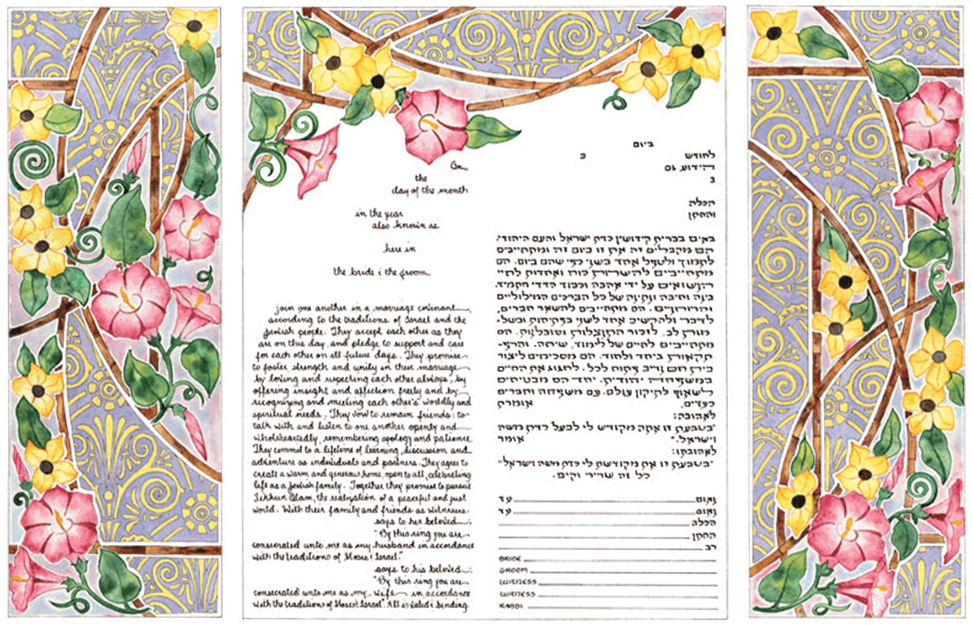 On
the
day of the month
in the year
also known as
here in
the bride & the groom
join one another in a marriage covenant
according to the traditions of Israel and the
Jewish people. They accept each other as they
are on this day, and pledge to support and care
for each other on all future days. They promise
to foster strength and unity in their marriage
by loving and respecting each other always, by
offering insight and affection freely and by
recognizing and meeting each other's worldly and
spiritual needs. They vow to remain friends: to
talk with and listen to one another openly and
wholeheartedly, remembering apology and patience.
They commit to a lifetime of learning, discussion and
adventure as individuals and partners. They agree to
create a warm and generous home, open to all, celebrating
life as a Jewish family. Together they promise to pursue
Tikkun Olam, the realization of a peaceful and just
world. With their family and friends as witnesses
says to her beloved:
"By this ring you are
consecrated unto me as my husband in accordance
with the traditions of Moses & Israel."
says to his beloved:
"By this ring you are
consecrated unto me as my wife in accordance
with the traditions of Moses & Israel". All is valid & binding.
ביום
לחודש ב
הידוע גם
ב
הכלה
והחתן
באים בברית קידושין כדת ישראל והעם היהודי.
הם מקבלים זה את זו ביום זה ומתחייבים
לתמוך ולטפל אחד בשני כפי שהם ביום. הם
מתחייבים כוח ואחדות לחיי
הנישואים על ידי אהבה וכבוד הדדי מתמיד,
בינה וחיבה של כל הצרכים
הם מתחייבים להשאר חברים,
לדבר ולהקשיב אחד לשני בפתיחות
לב, לזכור התנצלות וסובלנות. הם
מתחייבים לחיים של לימוד, שיחה,
ביחד ולחוד. הם מסכימים ליצור
בית חם פתוח לכל, לחגוג את החיים
כמשפחה יהודית. יחד הם מבטיחים
לשאוף לתיקון עולם. עם משפחה וחברים
כעדים, אומרת
לאהובה:
"בטבעת זו אתה מקודש לי לבעל כדת משה
וישראל." אומר
לאהובתו:
"בטבעת זו את מקודשת לי כדת משה וישראל"
כל זה שריר וקים.
נאום עד
נאום עד
הכלה
החתן
רב
BRIDE
GROOM
WITNESS
WITNESS
RABBI